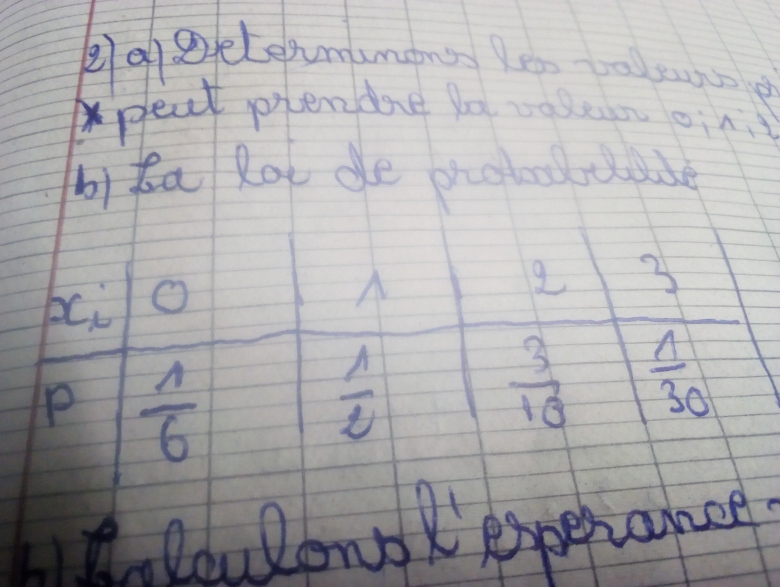 2) a) Determinons les valeurs
peut prendre la valeur 0; 1;
b) La loi de probabilité
xi 0 1 2 3
P 1/6 1/2 3/10 1/30
b) Calculons l'esperance